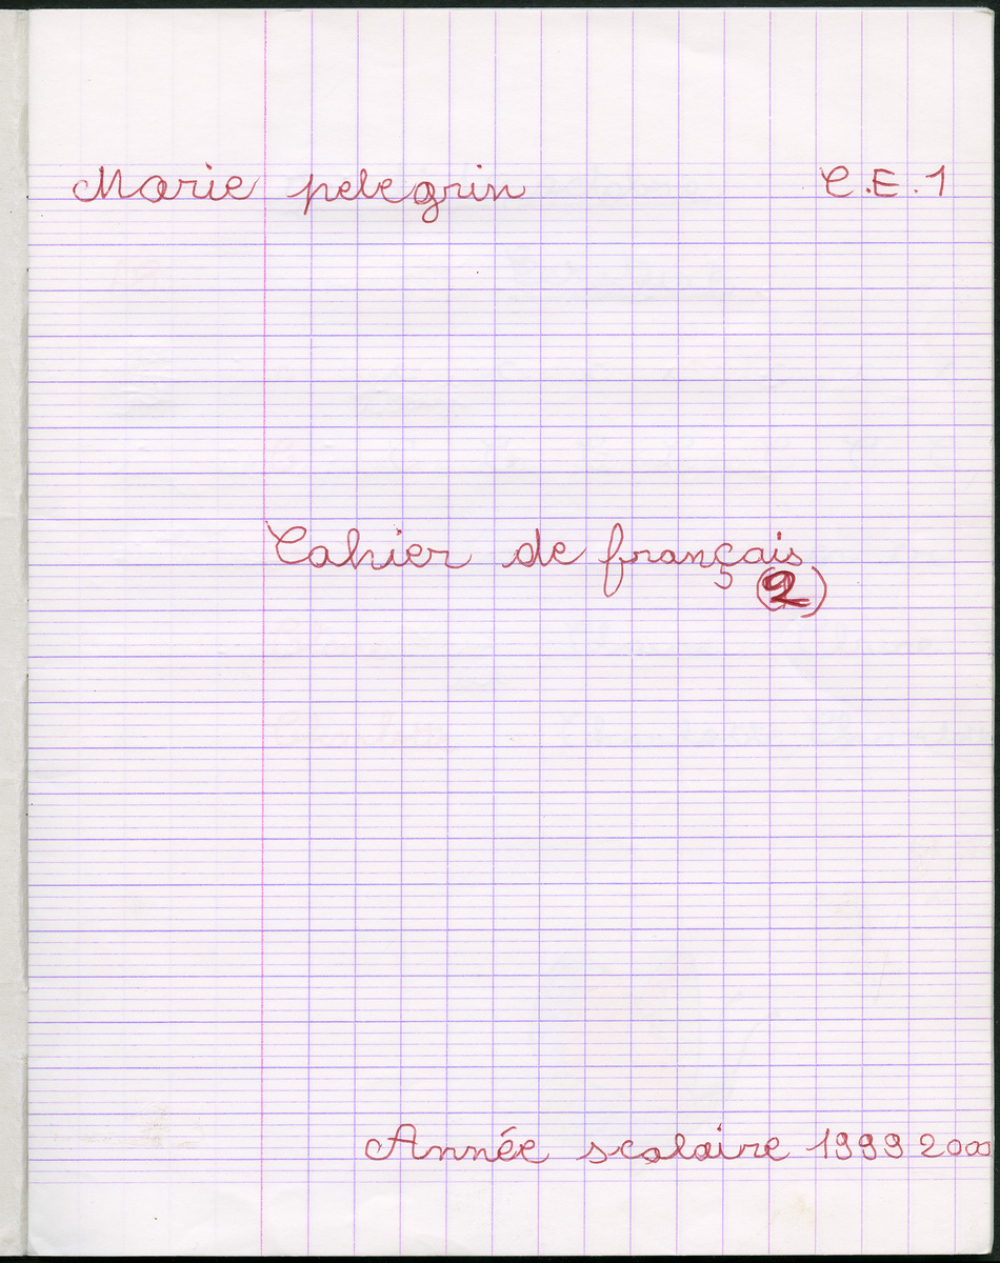 Marie pelegrin C.E.1
Cahier de français
(2)
Année scolaire 1999 2000